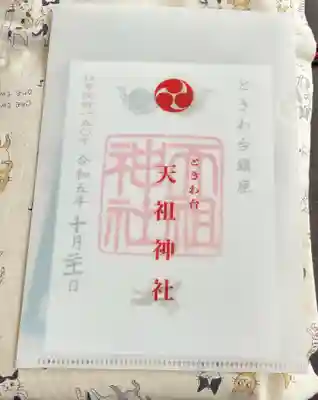 ときわ台鎮座
ときわ台
天祖神社
天祖神社
令和五年 十月二十一日